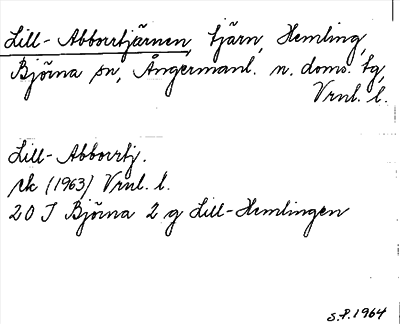 Lill-Abborrtjärnen, tjärn, Hemling,
Björna sn, Ångermanl. n. doms. tg,
Vrnl. l.
Lill-Abborrtj.
rk (1963) Vrnl. l.
20 J Björna 2 g Lill-Hemlingen
S.P. 1964